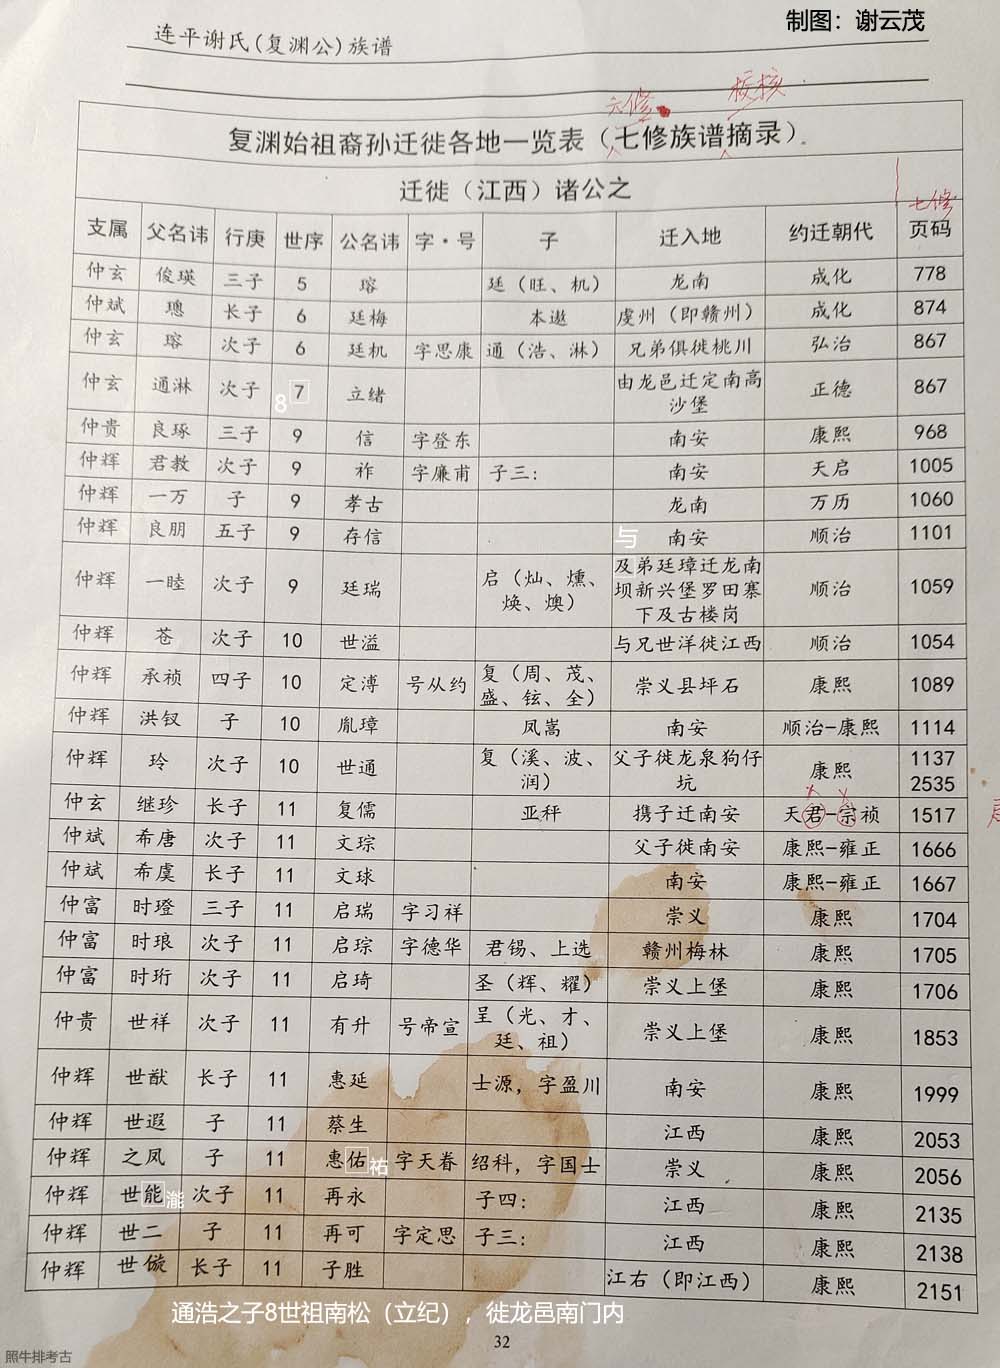 制图：谢云茂
连平谢氏(复渊公)族谱
六修 校核
复渊始祖裔孙迁徙各地一览表（七修族谱摘录）
迁徙（江西）诸公之
七修
支属 父名讳 行庚 世序 公名讳 字·号 子 迁入地 约迁朝代 页码
仲玄 俊瑛 三子 5 瑢 廷（旺、机） 龙南 成化 778
仲斌 璁 长子 6 廷梅 本遨 虔州（即赣州） 成化 874
仲玄 瑢 次子 6 廷机 字思康 通（浩、淋） 兄弟俱徙桃川 弘治 867
仲玄 通淋 次子 8 7 立绪 由龙邑迁定南高
沙堡 正德 867
仲贵 良琢 三子 9 信 字登东 南安 康熙 968
仲辉 君教 次子 9 祚 字廉甫 子三： 南安 天启 1005
仲辉 一万 子 9 孝古 龙南 万历 1060
仲辉 良朋 五子 9 存信 南安 顺治 1101
与
仲辉 一睦 次子 9 廷瑞 启（灿、燻、
焕、燠） 及弟廷璋迁龙南
坝新兴堡罗田寨
下及古楼岗 顺治 1059
仲辉 苍 次子 10 世溢 与兄世洋徙江西 顺治 1054
仲辉 承祯 四子 10 定溥 号从约 复（周、茂、
盛、铉、全） 崇义县坪石 康熙 1089
仲辉 洪钗 子 10 胤璋 凤嵩 南安 顺治-康熙 1114
仲辉 玲 次子 10 世通 复（溪、波、
润） 父子徙龙泉狗仔
坑 康熙 1137
2535
仲玄 继珍 长子 11 复儒 亚秤 携子迁南安 天君-宗祯 1517
仲斌 希唐 次子 11 文琮 父子徙南安 康熙-雍正 1666
仲斌 希虞 长子 11 文球 南安 康熙-雍正 1667
仲富 时璒 三子 11 启瑞 字习祥 崇义 康熙 1704
仲富 时琅 次子 11 启琮 字德华 君锡、上选 赣州梅林 康熙 1705
仲富 时珩 次子 11 启琦 圣（辉、耀） 崇义上堡 康熙 1706
仲贵 世祥 次子 11 有升 号帝宣 呈（光、才、
廷、祖） 崇义上堡 康熙 1853
仲辉 世猷 长子 11 惠延 士源，字盈川 南安 康熙 1999
仲辉 世遐 子 11 蔡生 江西 康熙 2053
仲辉 之凤 子 11 惠佑 祐 字天眷 绍科，字国士 崇义 康熙 2056
仲辉 世能 次子 11 再永 子四： 江西 康熙 2135
仲辉 世二 子 11 再可 字定思 子三： 江西 康熙 2138
仲辉 世 长子 11 子胜 江右（即江西） 康熙 2151
通浩之子8世祖南松（立纪），徙龙邑南门内
32
照牛排考古